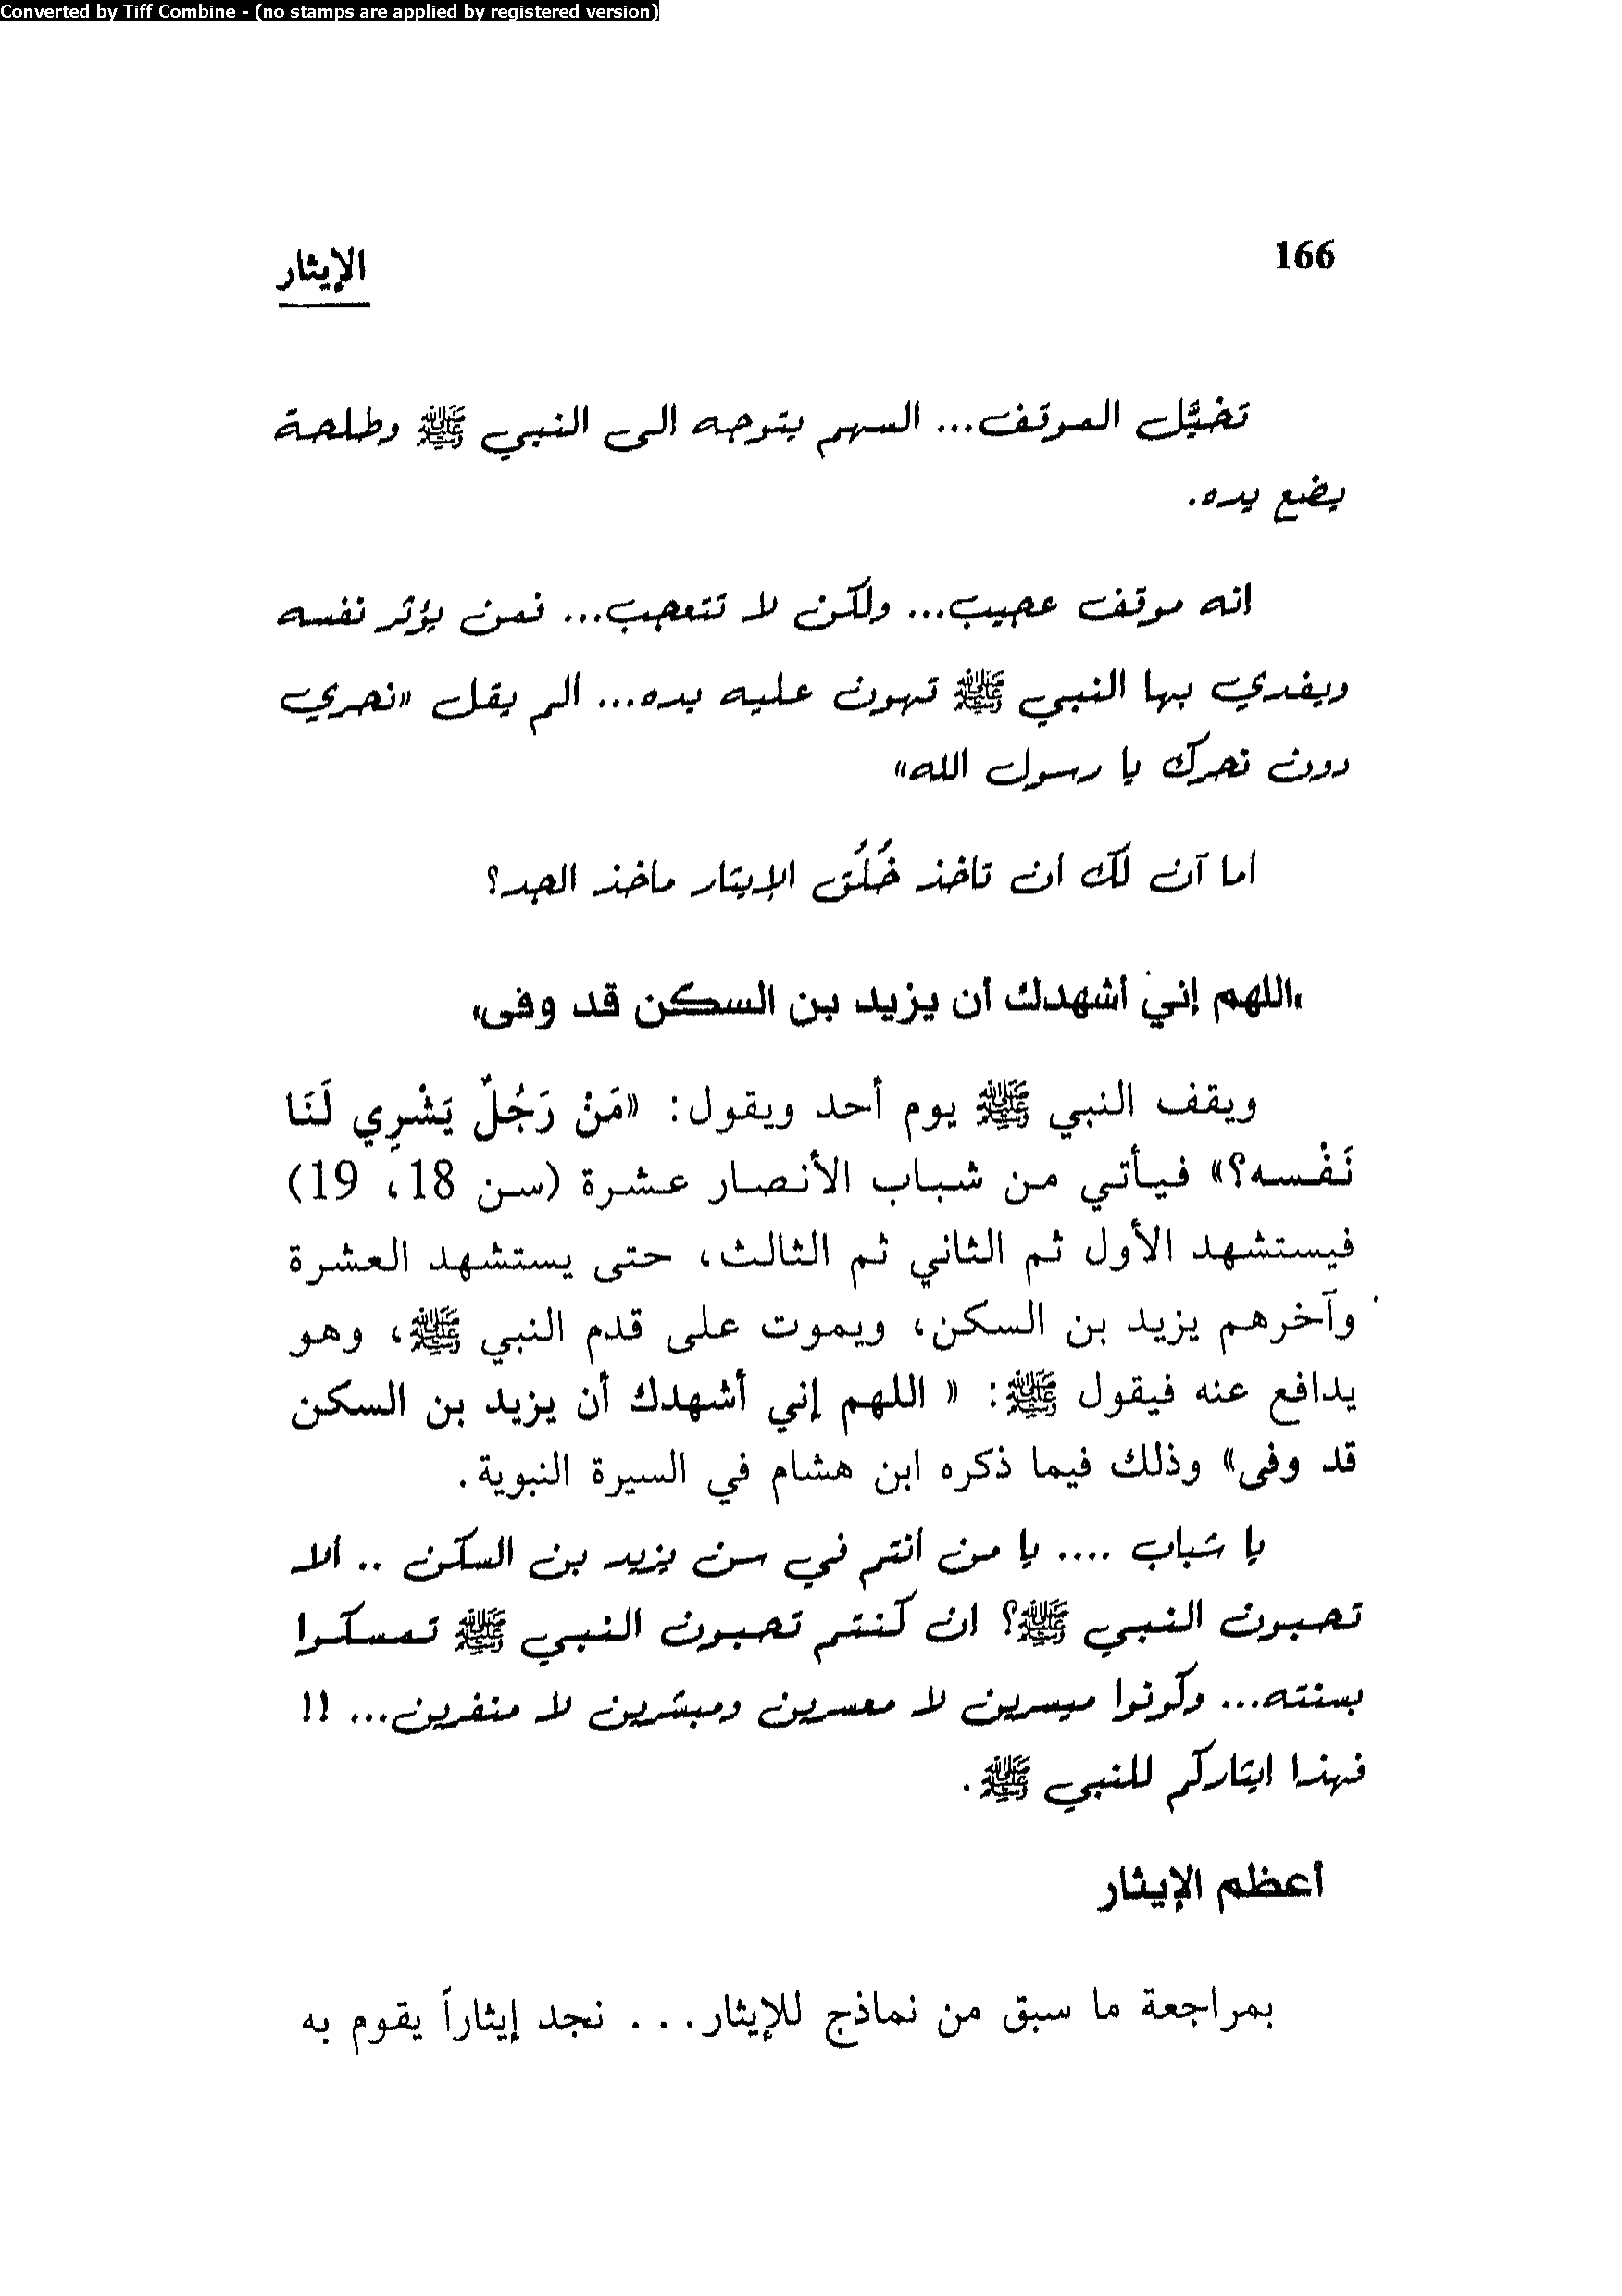 Converted by Tiff Combine - (no stamps are applied by registered version)
166
الإيثار
تخيَّل الموقف... السهم يتوجه الى النبي ﷺ وطلحة
يضع يده.
انه موقف عجيب... ولكن لا تتعجب... فمن يؤثر نفسه
ويفدي بها النبي ﷺ تهون عليه يده... الم يقل «نحري
دون نحرك يا رسول الله»
اما آن لك ان تاخذ خُلُق الإيثار ماخذ الجد؟
«اللهم إني أشهدك أن يزيد بن السكن قد وفى»
ويقف النبي ﷺ يوم أحد ويقول: «مَنْ رَجُلٌ يَشْرِي لَنَا
نَفْسه؟» فيأتي من شباب الأنصار عشرة (سن 18، 19)
فيستشهد الأول ثم الثاني ثم الثالث، حتى يستشهد العشرة
وآخرهم يزيد بن السكن، ويموت على قدم النبي ﷺ، وهو
يدافع عنه فيقول ﷺ: « اللهم إني أشهدك أن يزيد بن السكن
قد وفى» وذلك فيما ذكره ابن هشام في السيرة النبوية.
يا شباب .... يا من انتم في سن يزيد بن السكن .. الا
تحبون النبي ﷺ؟ ان كنتم تحبون النبي ﷺ تمسكوا
بسنته... وكونوا ميسرين لا معسرين ومبشرين لا منفرين... !!
فهذا ايثاركم للنبي ﷺ.
أعظم الإيثار
بمراجعة ما سبق من نماذج للإيثار... نجد إيثاراً يقوم به